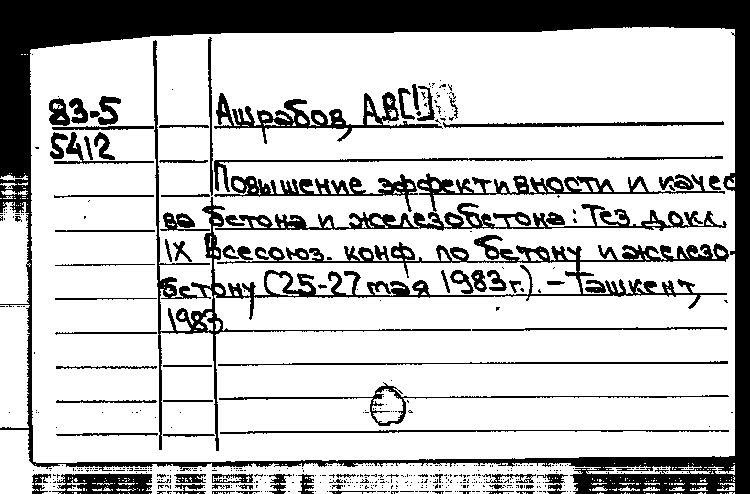 83-5 Ашрабов, А.В[!]
5412
Повышение эффективности и качес
ва бетона и железобетона: Тез. докл.
IX Всесоюз. конф. по бетону и железо-
бетону (25-27 мая 1983 г.). - Ташкент,
1983.